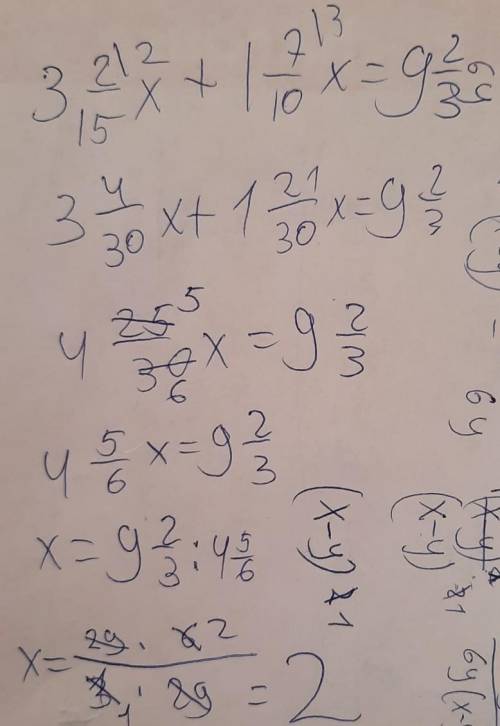 3 2/15 \2 x + 1 7/10 \3 x = 9 2/3
3 4/30 x + 1 21/30 x = 9 2/3
4 25/30 5/6 x = 9 2/3
4 5/6 x = 9 2/3
x = 9 2/3 : 4 5/6
x = 29 · 6 2 / 3 1 · 29 = 2
(x-y)
1
6y
6y
(x-y)
1
6y(x-